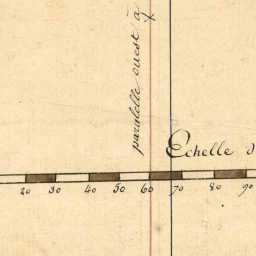 paralelle ouest à
Echelle d
20 30 40 50 60 70 80 90